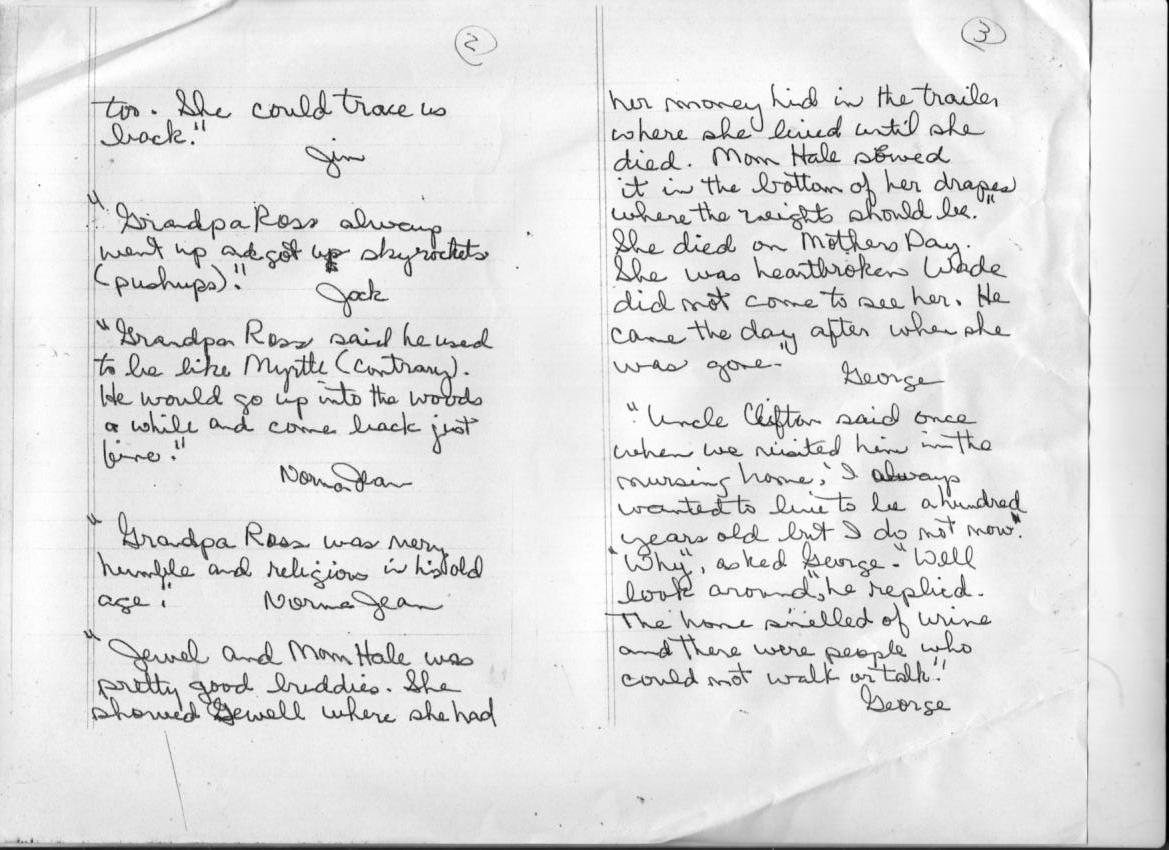 2
too. She could trace us
back."
Jim
"Grandpa Ross always
went up and got up skyrockets
(pushups)."
Jack
"Grandpa Ross said he used
to be like Myrtle (contrary).
He would go up into the woods
a while and come back just
fine."
Norma Jean
"Grandpa Ross was very
humble and religious in his old
age." Norma Jean
"Jewel and Mom Hale was
pretty good buddies. She
showed Jewell where she had
3
her money hid in the trailer
where she lived until she
died. Mom Hale sewed
it in the bottom of her drapes
where the weights should be."
She died on Mothers Day.
She was heartbroken Wade
did not come to see her. He
came the day after when she
was gone."
George
"Uncle Clifton said once
when we visited him in the
nursing home, 'I always
wanted to live to be a hundred
years old but I do not now."
"Why", asked George. "Well
look around", he replied.
The home smelled of urine
and there were people who
could not walk or talk."
George